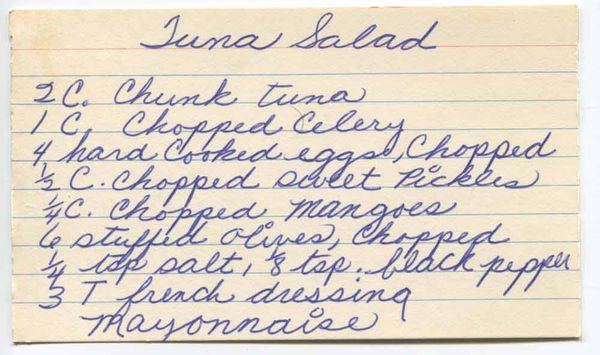 Tuna Salad
2 C. Chunk tuna
1 C. Chopped Celery
4 hard Cooked eggs, Chopped
½ C. Chopped sweet Pickles
¼ C. Chopped Mangoes
6 stuffed olives, Chopped
¼ tsp salt, ⅛ tsp. black pepper
3 T french dressing
Mayonnaise